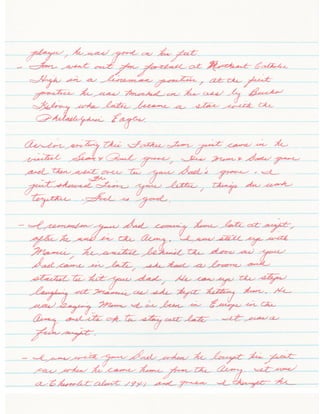 player, he was good on his feet.
- Tom went out for football at Northeast Catholic
High in a lineman position, at the first
practice he was knocked on his ass by Bucko
Kilroy who later became a star with the
Philadelphia Eagles.
As I'm writing this Father Tom just came in he
visited Sean's grave, his Mom & Dads grave
and then went over to your Dad's grave. I
just showed Tom your letter, things do work
together. God is good.
- I remember your Dad coming home late at night,
after he was in the Army. I was still up with
Mamie, she waited behind the door as your
Dad came in late, she had a broom and
started to hit your Dad, he ran up the steps
laughing at Mamie as she kept hitting him. He
was saying Mom I've been in Europe in the
Army and its ok to stay out late. It was a
fun night.
- I was with your Dad when he bought his first
car when he came home from the Army. It was
a Chevrolet about 1941 and I thought he